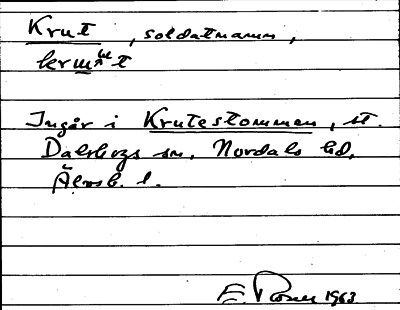 Krut, soldatnamn,
Ingår i Krutestommen, st.
Dalskogs sn, Nordals hd,
Älvsb. l.
E. Rosen 1963